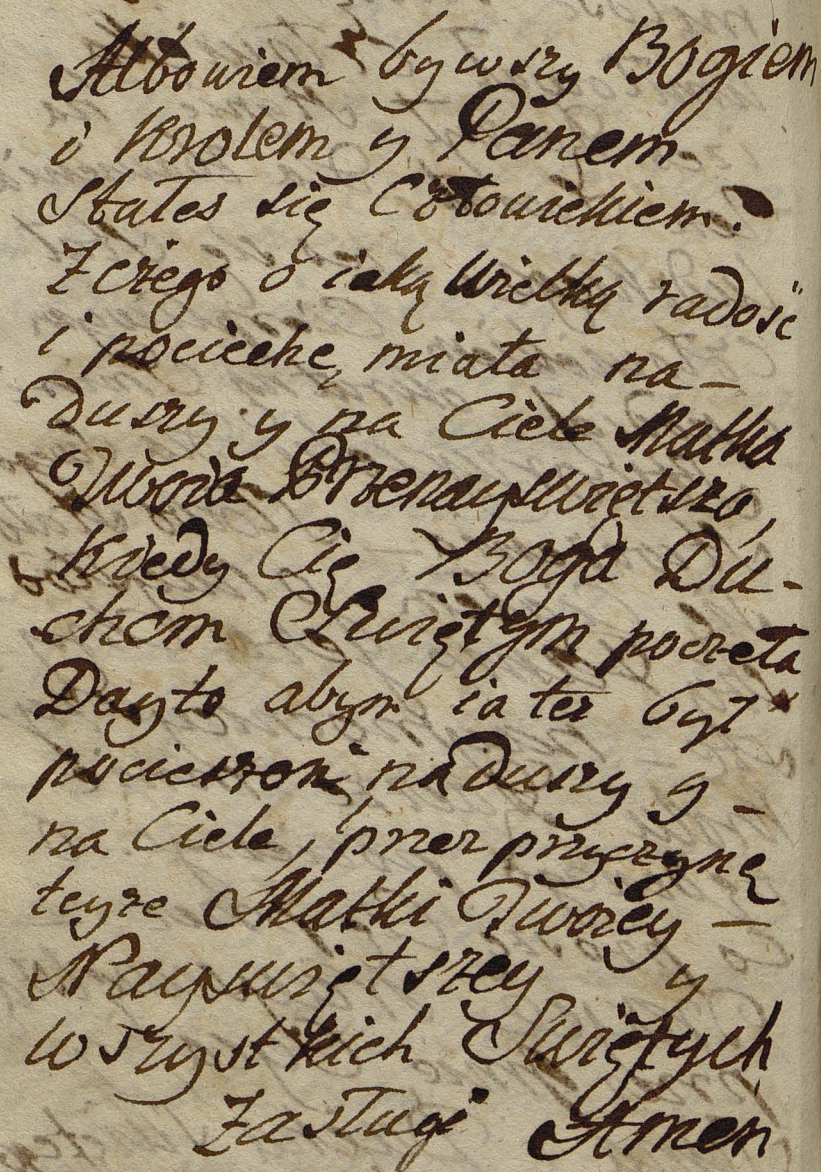 Albowiem bywszy Bogiem
i Krolem y Panem
Stałes się Człowiekiem.
Zczego o iaką Wielką radość
i pociechę, miała na-
Duszy y na Ciele Matka
Twoia Przenayswiętsza,
Kiedy Cię Boga Du-
chem Swiętym poczeła
Dayto abym ia tez był
pocieszoni na Duszy y -
na Ciele, przez przyczynę
teyze Matki Twoiey -
Nayswiętszey y
wszystkich Swiętych
Zasługi Amen